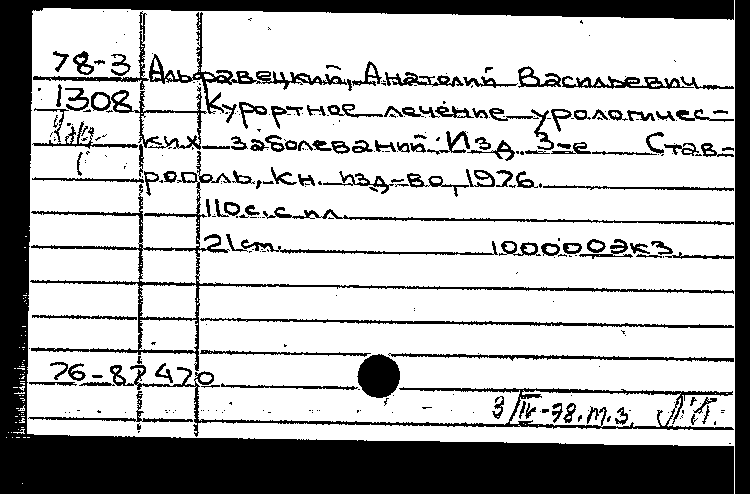 78-3 Альфавецкий, Анатолий Васильевич
1308 Курортное лечение урологичес-
ких заболеваний. Изд. 3-е Став-
рополь, Кн. изд-во, 1976.
110 с. с ил.
21 см. 100000 экз.
76-87470
3/IV-78. т.з.